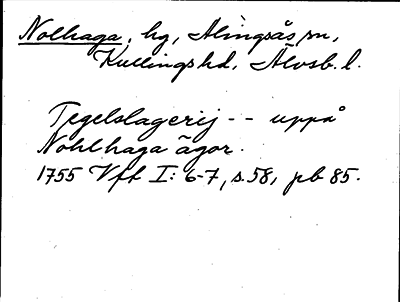 Nolhaga, hg, Alingsås sn,
Kullings hd, Älvsb. l.
Tegelslagerij - - uppå
Nohlhaga ägor.
1755 Vfh I: 6-7, s. 58, pb 85.